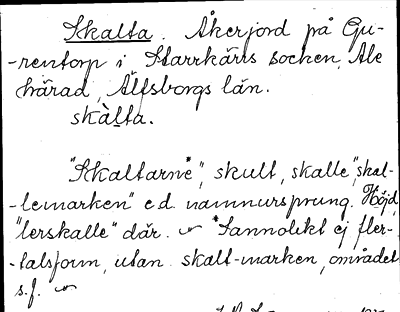 Skalta. Åkerjord på Gu-
-rentorp i Starrkärrs socken, Ale
härad, Älfsborgs län.
skàlta.
"Skaltarne*", skult, skalle, "skal-
-lemarken" e.d. namnursprung. Höjd,
"lerskalle" där. *Sannolikt ej fler-
-talsform, utan skalt-marken, området
s.f.